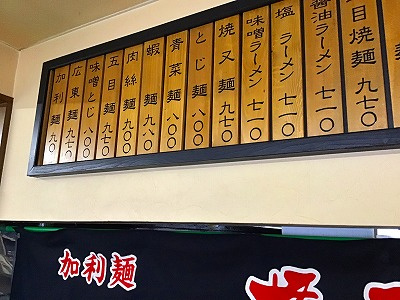 目焼麺 九七〇
醤油ラーメン 七一〇
塩ラーメン 七一〇
味噌ラーメン 七一〇
焼叉麺 九七〇
とじ麺 八〇〇
青菜麺 八〇〇
蝦麺 九八〇
肉絲麺 九〇〇
五目麺 九七〇
味噌とじ 八〇〇
広東麺 九七〇
加利麺 九〇
加利麺